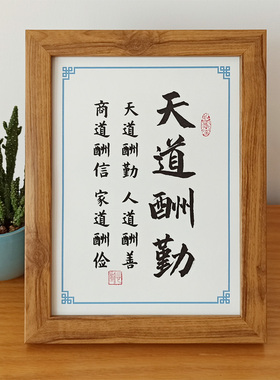 天道酬勤
天道酬勤 人道酬善
商道酬信 家道酬俭